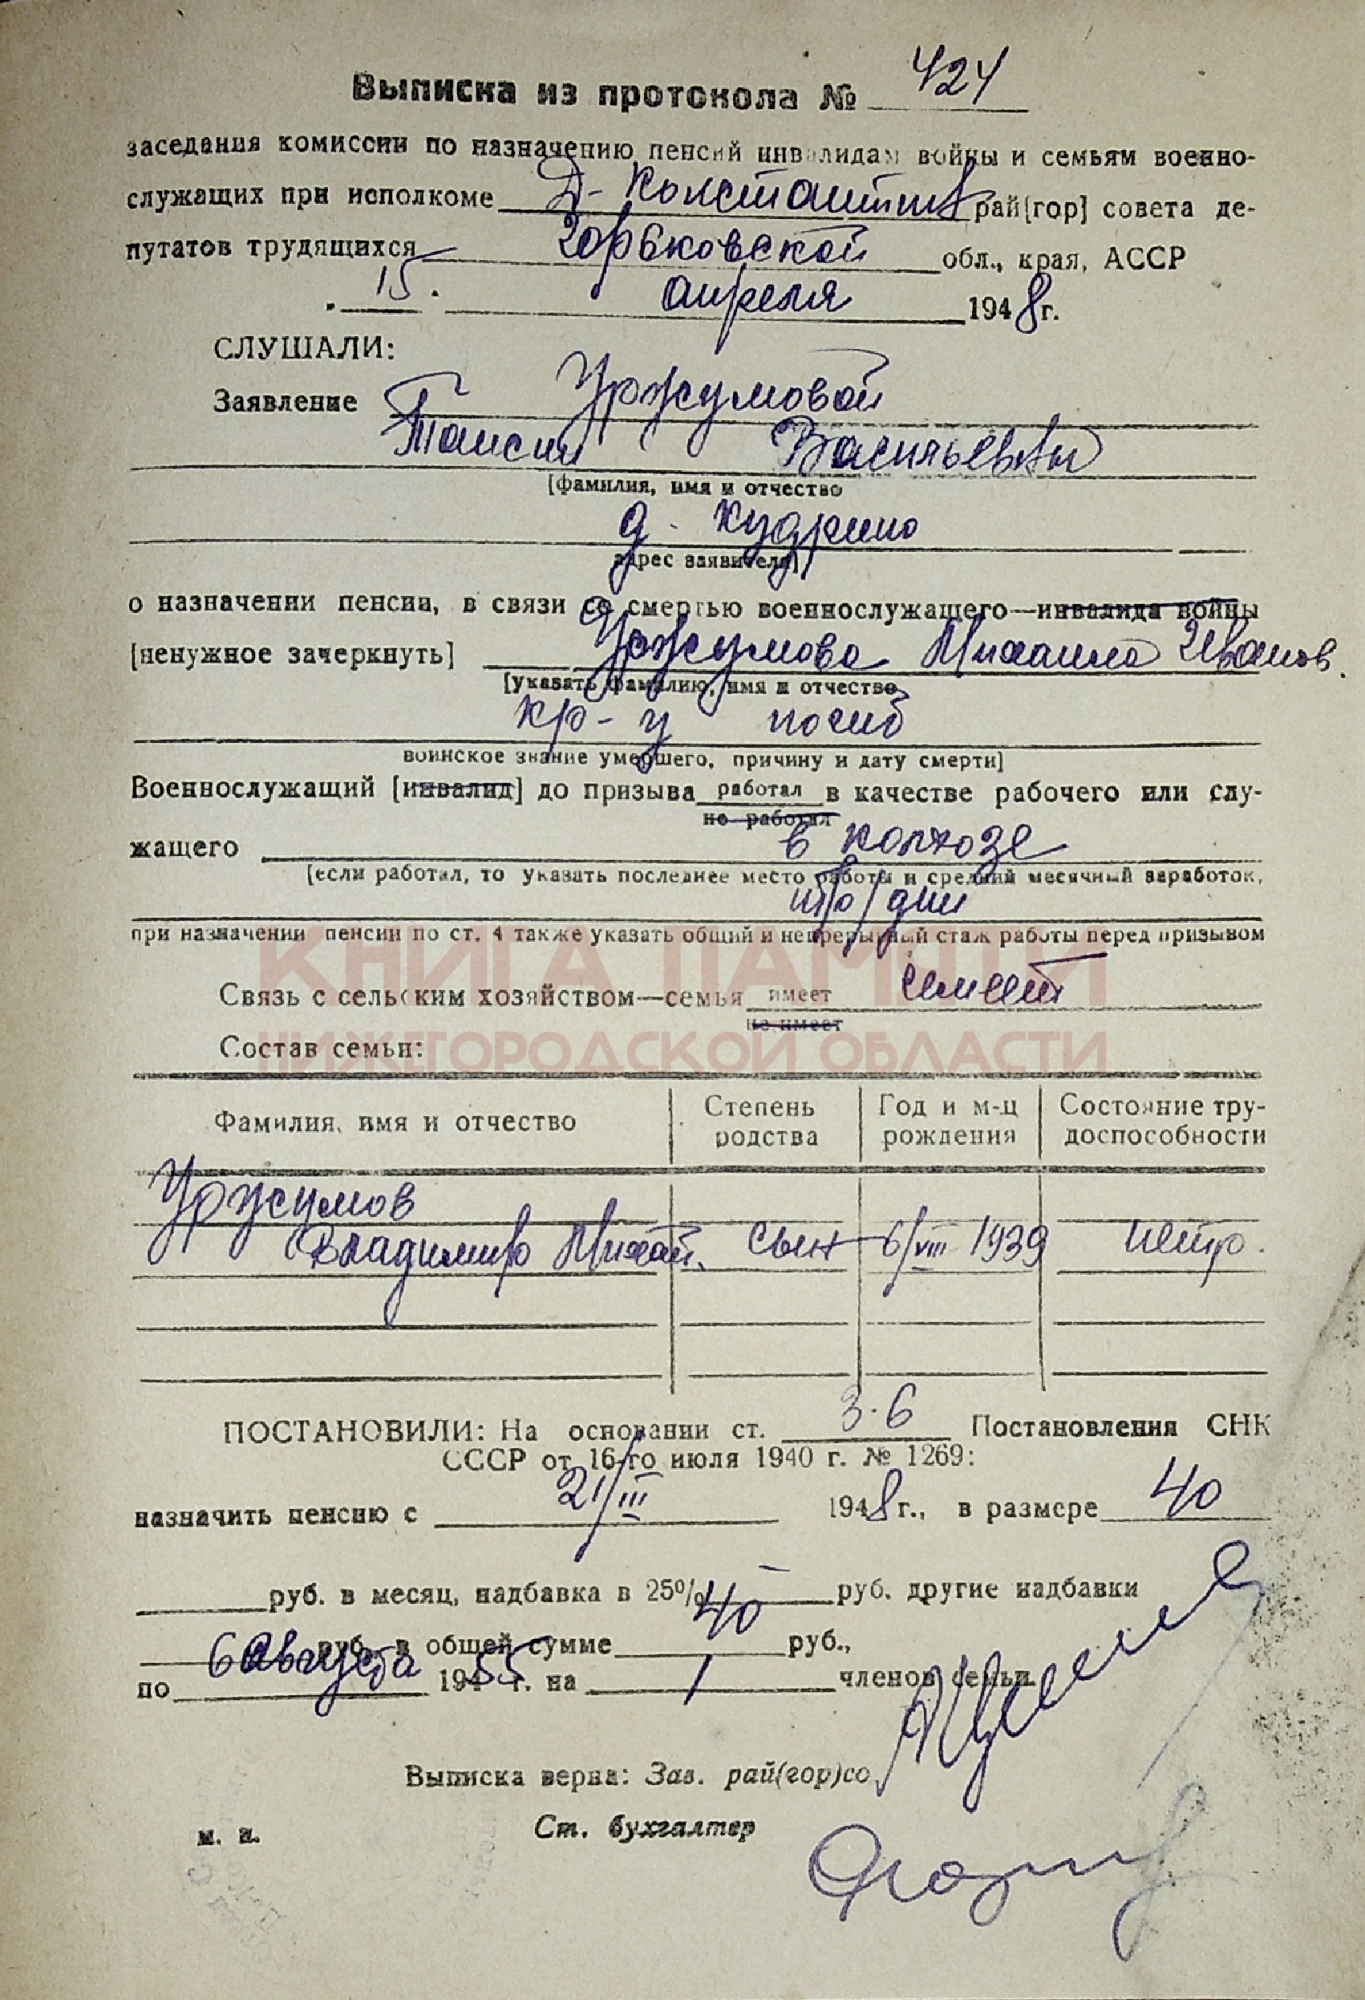 Выписка из протокола № 424
заседания комиссии по назначению пенсий инвалидам войны и семьям военно-
служащих при исполкоме Д-Константин рай[гор] совета де-
путатов трудящихся Горьковской обл., края, АССР
"15" апреля 1948 г.
СЛУШАЛИ:
Заявление Уржумовой
Таисии Васильевны
[фамилия, имя и отчество
д. Кудрино
адрес заявителя]
о назначении пенсии, в связи со смертью военнослужащего—инвалида войны
[ненужное зачеркнуть] Уржумова Михаила Иванов.
[указать фамилию, имя и отчество
кр-ц погиб
воинское звание умершего, причину и дату смерти]
Военнослужащий [инвалид] до призыва работал в качестве рабочего или слу-
не работал
жащего в колхозе
[если работал, то указать последнее место работы и средний месячный заработок,
тр/дни
при назначении пенсии по ст. 4 также указать общий и непрерывный стаж работы перед призывом
КНИГА ПАМЯТИ
Связь с сельским хозяйством—семья имеет имеет
не имеет
НИЖЕГОРОДСКОЙ ОБЛАСТИ
Состав семьи:
Фамилия, имя и отчество Степень родства Год и м-ц рождения Состояние тру-доспособности
Уржумов
Владимир Михай. сын 6/VIII 1939 нетр.
ПОСТАНОВИЛИ: На основании ст. 3.6 Постановления СНК
СССР от 16-го июля 1940 г. № 1269:
назначить пенсию с 21/III 1948 г., в размере 40
руб. в месяц, надбавка в 25% — руб. другие надбавки
руб. в общей сумме 40 руб.,
по 6 августа 1955 г. на 1 членов семьи.
Выписка верна: Зав. рай(гор)со
м. п. Ст. бухгалтер